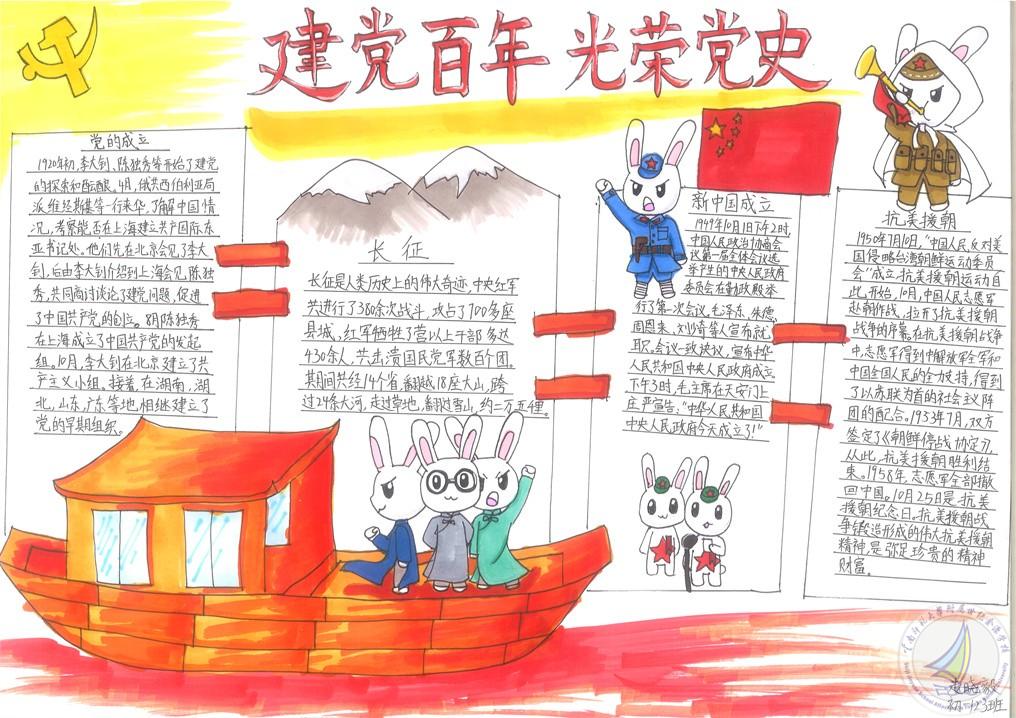 建党百年 光荣党史
党的成立
1920年初,李大钊、陈独秀等开始了建党
的探索和酝酿。4月,俄共西伯利亚局
派维经斯基等一行来华,了解中国情
况,考察能否在上海建立共产国际东
亚书记处。他们先在北京会见李大
钊,后由李大钊介绍到上海会见陈独
秀,共同商讨谈论了建党问题,促进
了中国共产党的创立。8月陈独秀
在上海成立了中国共产党的发起
组。10月,李大钊在北京建立了共
产主义小组。接着,在湖南,湖
北,山东,广东等地,相继建立了
党的早期组织。
长征
长征是人类历史上的伟大奇迹,中央红军
共进行了380余次战斗,攻占了700多座
县城,红军牺牲了营以上干部多达
430余人,共击溃国民党军数百个团。
期间共经14个省,翻越18座大山,跨
过24条大河,走过草地,翻过雪山,约二万五千里。
新中国成立
1949年10月1日下午2时,
中国人民政治协商会
议第一届全体会议选
举产生的中央人民政府
委员会在勤政殿举
行了第一次会议,毛泽东,朱德,
周恩来,刘少奇等人宣布就
职。会议一致决议,宣布中华
人民共和国中央人民政府成立
下午3时,毛主席在天安门上
庄严宣告:“中华人民共和国
中央人民政府今天成立了!”
抗美援朝
1950年7月10日,“中国人民反对美
国侵略台湾朝鲜运动委员
会”成立,抗美援朝运动自
此开始,10月,中国人民志愿军
赴朝作战,拉开了抗美援朝
战争的序幕。在抗美援朝战争
中,志愿军得到中解放军全军和
中国全国人民的全力支持,得到
了以苏联为首的社会主义阵
团的配合。1953年7月,双方
签定了《朝鲜停战协定》,
从此,抗美援朝胜利结
束。1958年,志愿军全部撤
回中国。10月25日是抗美
援朝纪念日。抗美援朝战
争锻造形成的伟大抗美援朝
精神,是弥足珍贵的精神
财富。
初 班